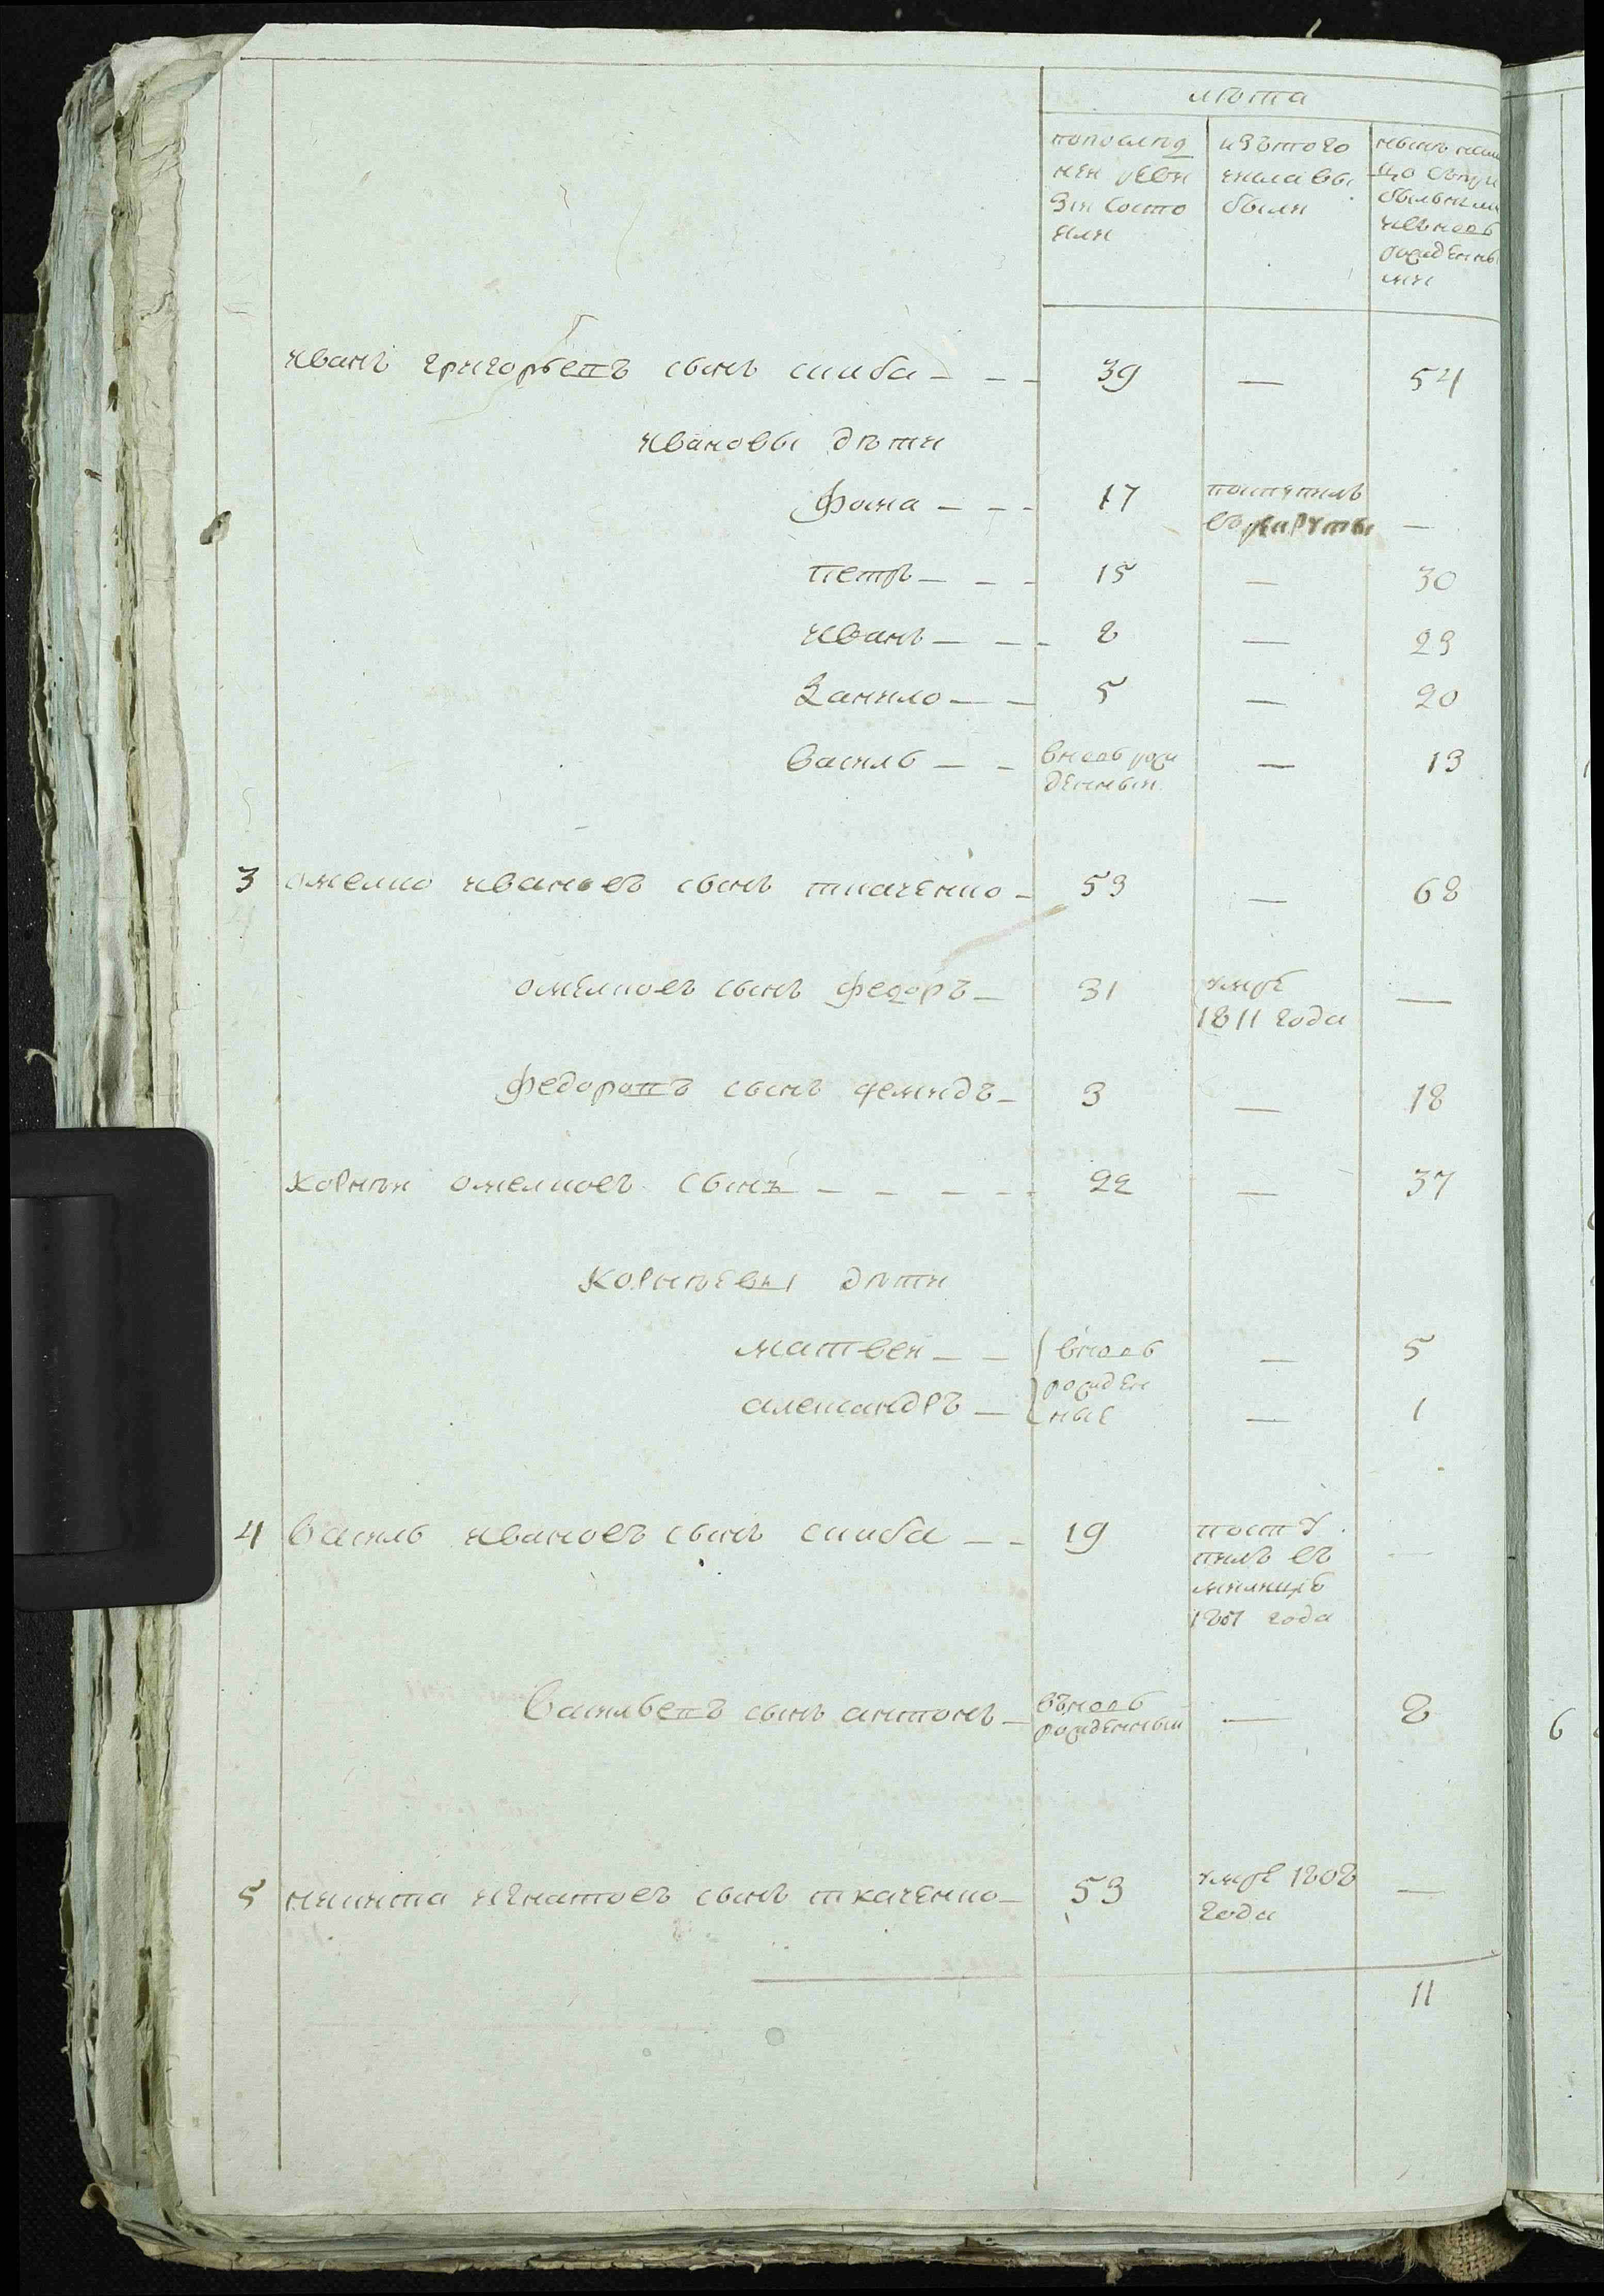 лѣта
попослед
ней реви
зіи состо
яли
изътого
числа вы
были
нынѣ нали
цо съпри
былыми
ивновь
рожденны
ми
Иванъ григорьевъ сынъ скиба 39 — 54
Ивановы дѣти
Фома 17 поступилъ
въ рекруты —
Петръ 15 — 30
Иванъ 8 — 23
Данило 5 — 20
Василь вновь рож
денный — 13
3 омелко ивановъ сынъ ткаченко 53 — 68
омелковъ сынъ федоръ 31 умре
1811 года —
федоровъ сынъ демидъ 3 — 18
Корнѣй омелковъ сынъ 22 — 37
Корнѣевы дѣти
матвей вновь — 5
рожден
александръ ные — 1
4 Василь ивановъ сынъ скиба 19 посту
пилъ въ —
милицiю
1807 года
Васильевъ сынъ антонъ вьновь
рожденный — 8
5 микита игнатовъ сынъ ткаченко 53 умре 1808
года —
11
6